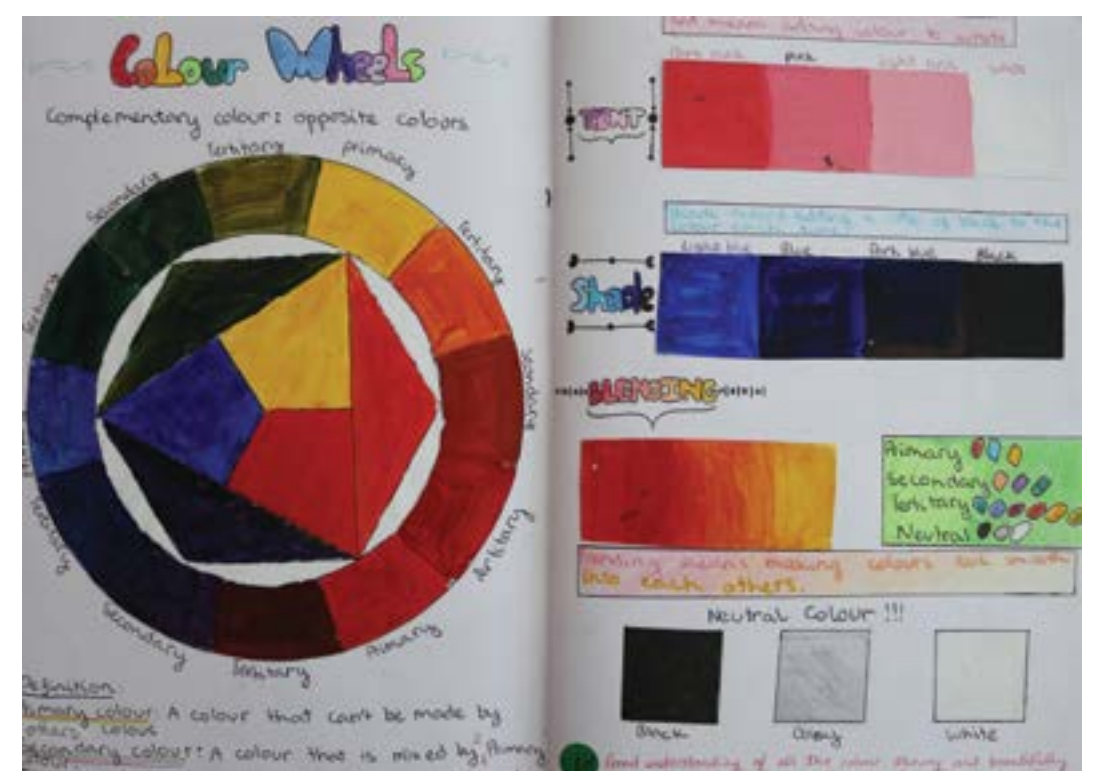 Colour Wheels
Complementary colour: opposite colours
Tertitary
Primary
Secondary
Tertitary
Tertitary
Secondary
Tertitary
Tertitary
Secondary
Primary
Tertitary
Definition
Primary colour: A colour that can't be made by
others colour
Secondary colour: A colour that is mixed by 2 Primary
colour.
means adding colour to white
Dark pink
pink
light pink
white
TINT
Shade means adding a of black to the
colour
Light blue
Blue
Dark blue
Black
Shade
BLENDING
Primary
Secondary
Tertitary
Neutral
Blending means making colours look smooth
into each others.
Neutral Colour !!!
Black
Gray
White
Good understanding of all the colour theory and beautifully